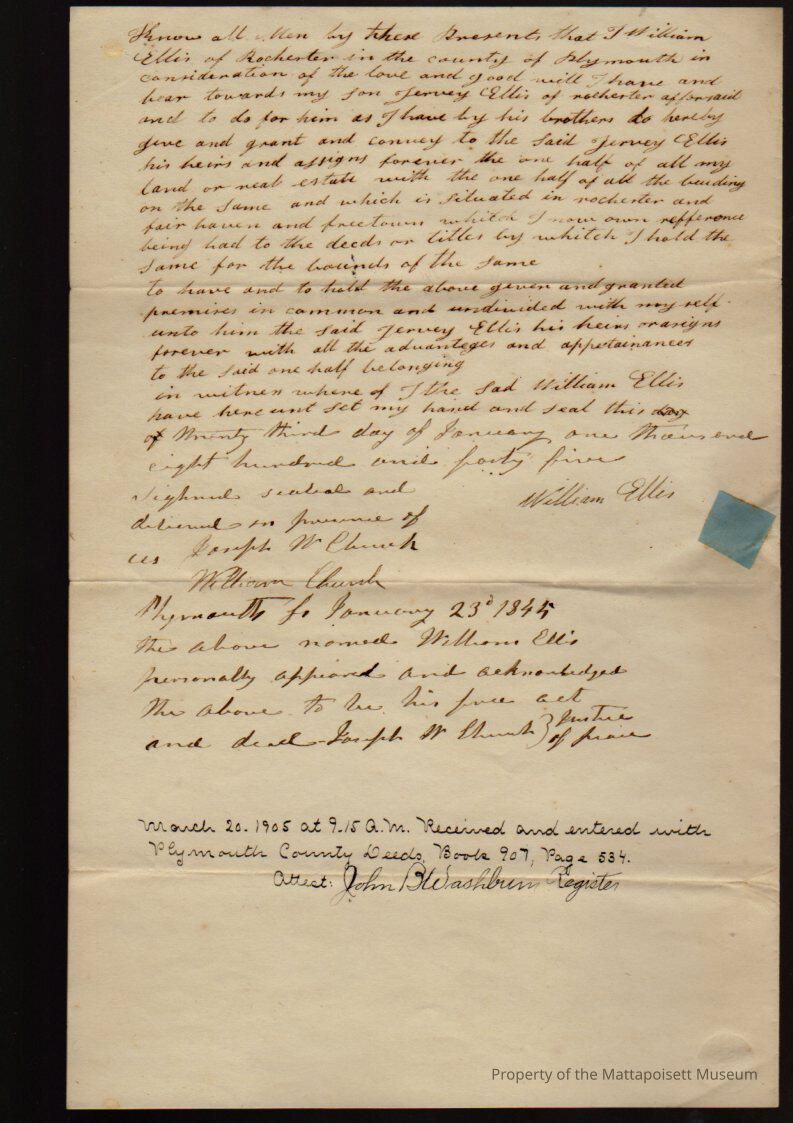 Know all Men by these Presents that I William
Ellis of Rochester in the county of Plymouth in
consideration of the love and good will I have and
bear towards my son Jervey Ellis of rochester afforsaid
and to do for him as I have by his brothers do hereby
give and grant and convey to the said Jervey Ellis
his heirs and assigns forever the one half of all my
land or real estate with the one half of all the building
on the same and which is situated in rochester and
fair haven and freetown whitch I now own refference
being had to the deeds or titles by whitch I hold the
same for the bounds of the same
to have and to hold the above given and granted
premises in common and undivided with my self
unto him the said Jervey Ellis his heirs or asigns
forever with all the advanteges and appetainances
to the said one half belonging
in witness where of I the sad William Ellis
have here unt set my hand and seal this day
of twenty third day of January one thousend
eight hundred and forty five
signed sealed and
William Ellis
delivered in presence of
us Joseph W Church
William Church
Plymouth ss January 23d 1845
the above named William Ellis
personally appeared and acknowledged
the above to be his free act
and deed - Joseph W Church } Justice
of peace
March 20. 1905 at 9-15 A.M. Received and entered with
Plymouth County Deeds, Book 907, Page 534.
Attest: John B Washburn Register
Property of the Mattapoisett Museum